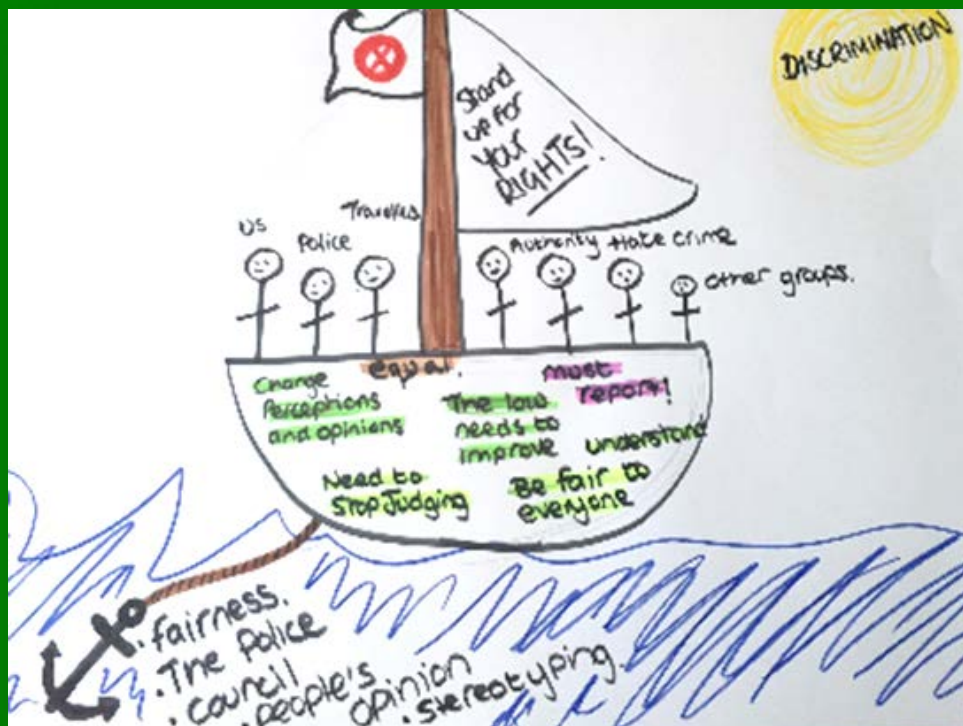 DISCRIMINATION
Stand
up for
your
RIGHTS!
us
Police
Travellers
Authority
Hate crime
other groups.
equal.
Change
Perceptions
and opinions
The law
needs to
improve
must
report!
understand
Need to
Stop Judging
Be fair to
everyone
. fairness.
. The Police
. council
. people's
opinion
. stereotyping.